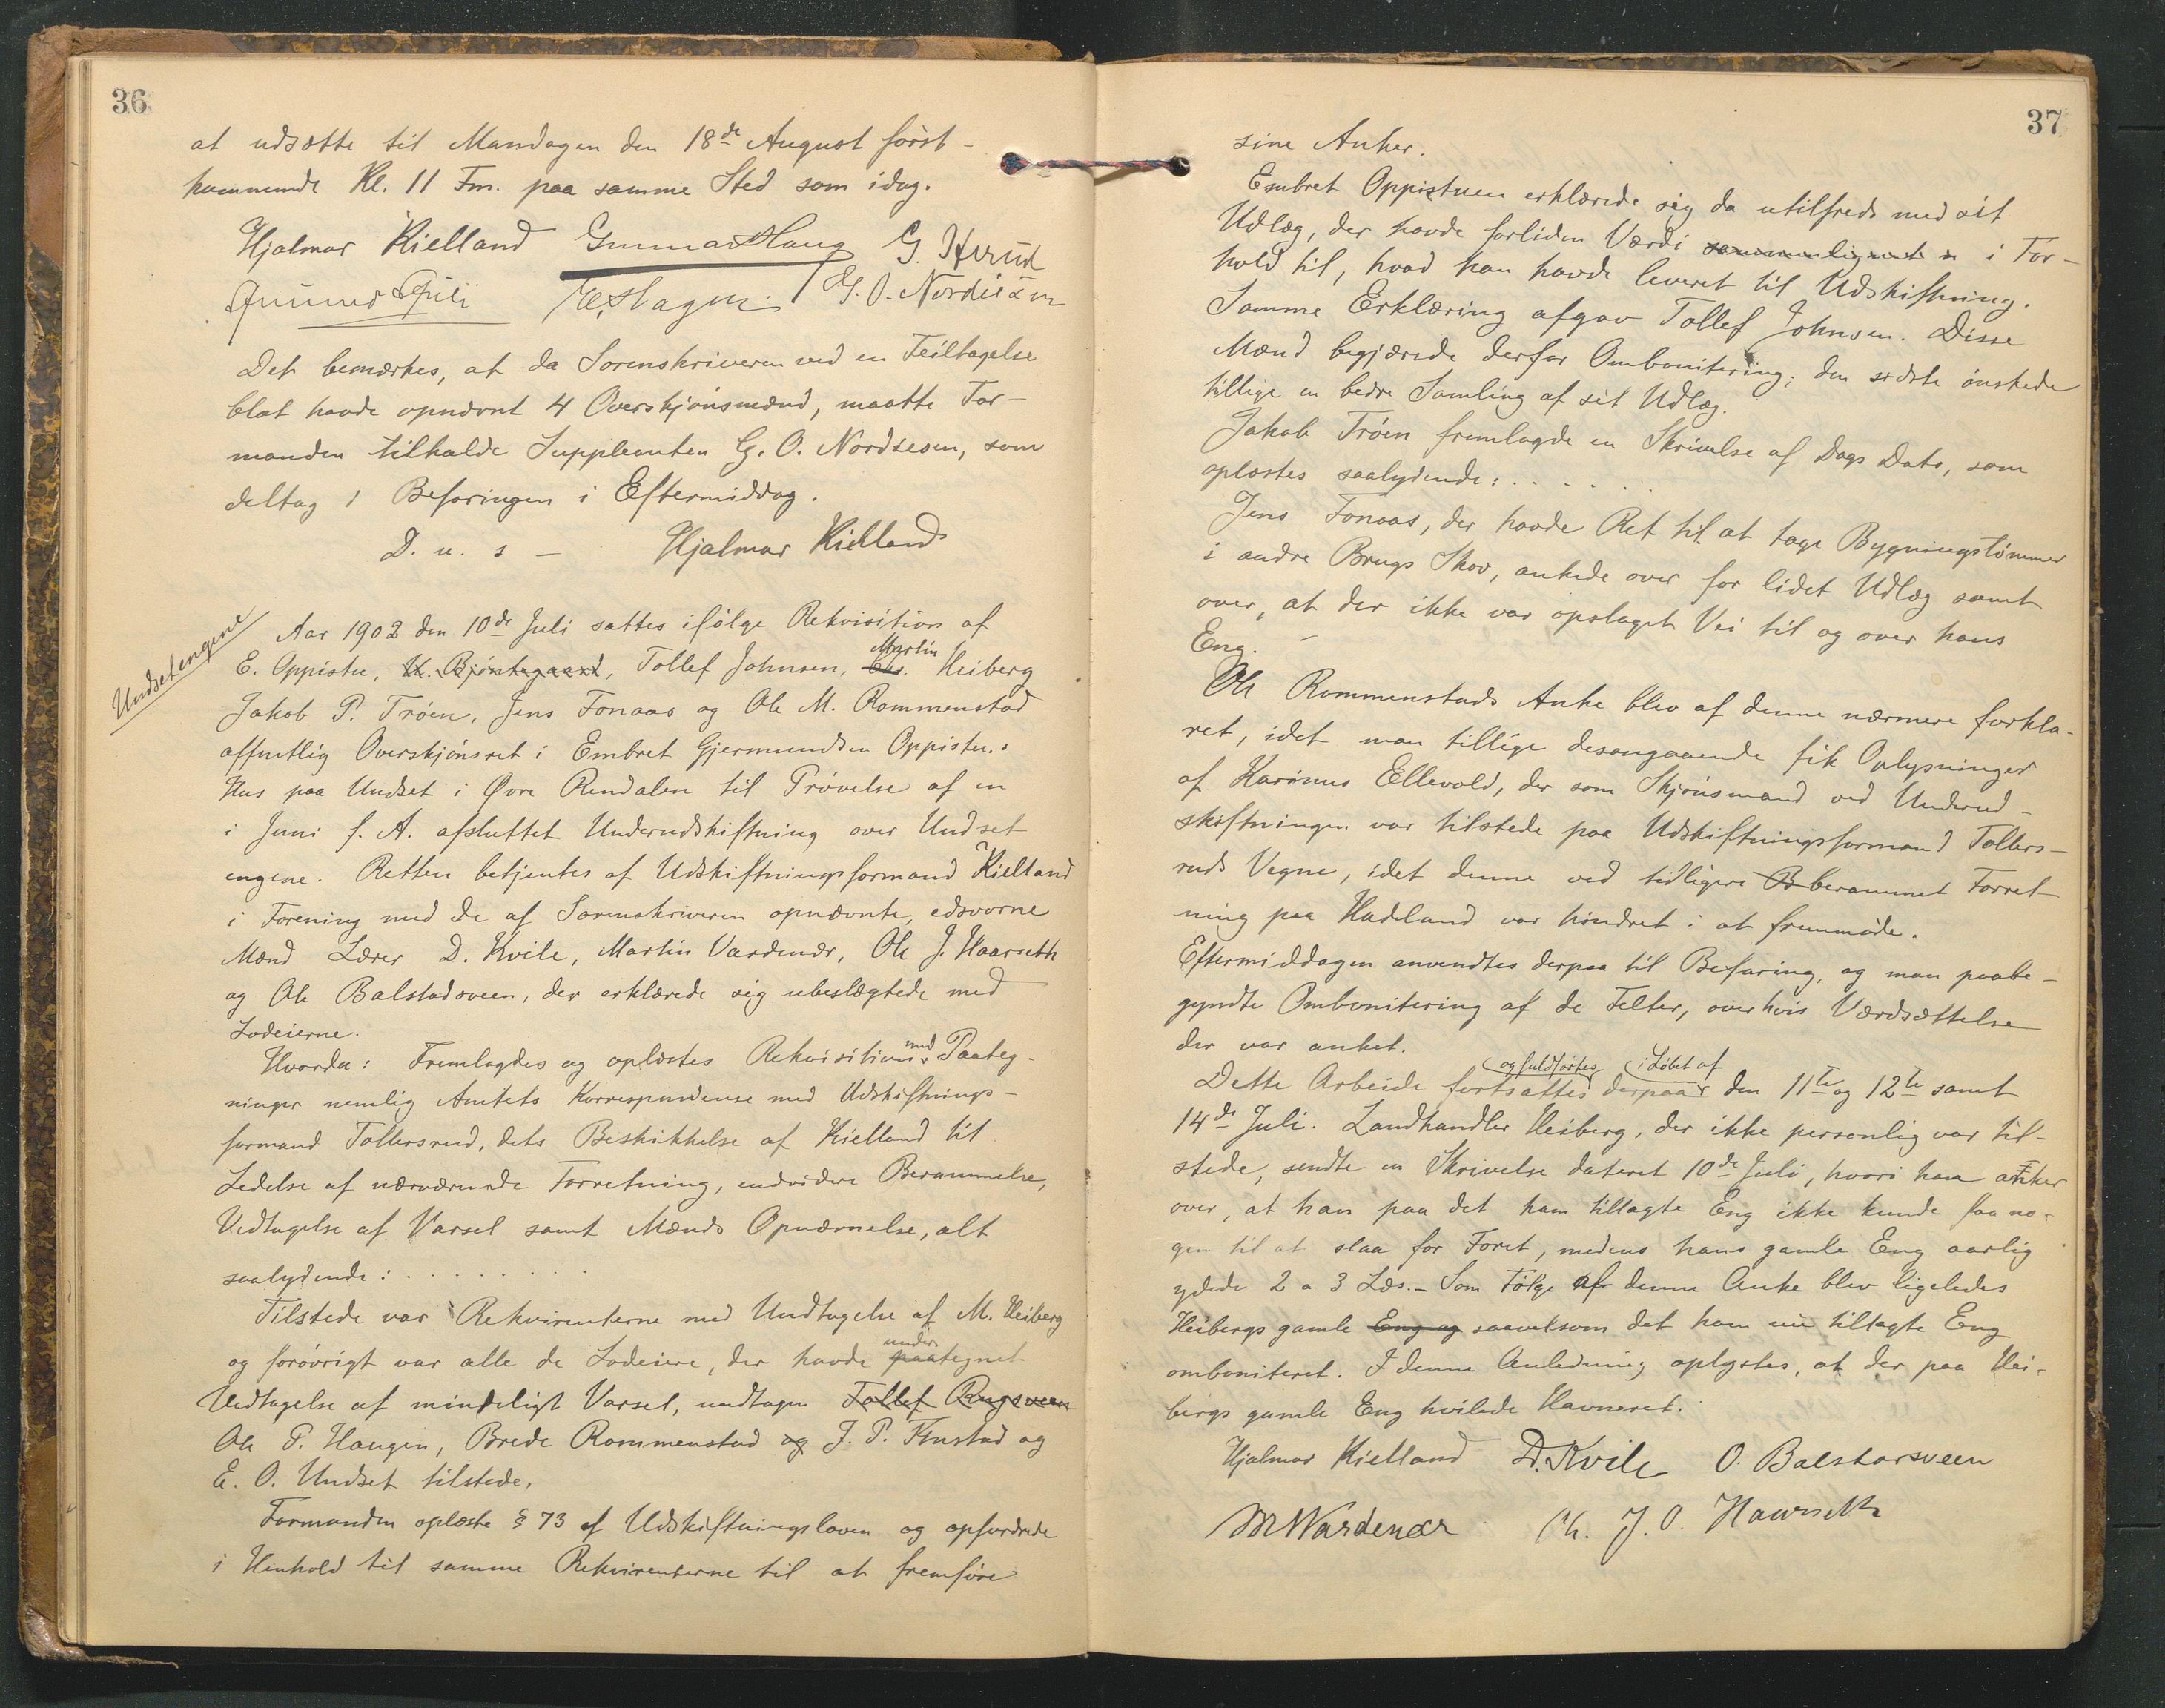 36
at udsætte til Mandagen den 18de August först-
kommende Kl. 11 Fm. paa samme Sted som idag.
Hjalmar Kielland Gunnar Haug G. Harud
G. O. Nordiesen
Det bemærkes, at da Sorenskriveren ved en Feiltagelse
blot havde opnævnt 4 Overskjönsmænd, maatte For-
manden tilkalde Suppleanten G. O. Nordsesen, som
deltog i Befaringen i Eftermiddag.
D. u. s - Hjalmar Kielland
Undsetengene
Aar 1902 den 10de Juli sattes ifölge Rekvisition af
E. Oppistu, K. Bjöntegaard, Tollef Johnsen, Chr. Martin Heiberg
Jakob P. Tröen, Jens Fonaas og Ole M. Rommenstad
offentlig Overskjönsret i Embret Gjermundsen Oppistu.s
Hus paa Undset i Øvre Rendalen til Prövelse af en
i Juni f. A. afsluttet Underudskiftning over Undset
engene. Retten betjentes af Udskiftningsformand Kielland
i Forening med de af Sorenskriveren opnævnte, edsvorne
Mænd Lærer D. Kvile, Martin Vardenær, Ole J. Haarseth
og Ole Balstadsveen, der erklærede sig ubeslægtede med
Lodeierne.
Hvorda: Fremlagdes og oplæstes Rekvisition med Paateg-
ninger nemlig Amtets Korrespondense med Udskiftnings-
formand Tollersrud, dets Beskikkelse af Kielland til
Ledelse af nærværende Forretning, endvidere Berammelse,
Vedtagelse af Varsel samt Mænds Opnævnelse, alt
saalydende: . . . . . . . .
Tilstede var Rekvirenterne med Undtagelse af M. Heiberg
og forövrigt var alle de Lodeiere, der havde paa under tegnet
Vedtagelse af mindeligt Varsel, undtagen Tollef Rugsveen
Ole P. Haugen, Brede Rommenstad og J. P. Finstad og
E. O. Undset tilstede.
Formanden oplæste § 73 af Udskiftningsloven og opfordrede
i Henhold til samme Rekvirenterne til at fremföre
37
sine Anker.
Embret Oppistuen erklærede sig da utilfreds med sit
Udlæg, der havde forliden Værdi sammenlignet i For-
hold til, hvad han havde leveret til Udskiftning.
Samme Erklæring afgav Tollef Johnsen. Disse
Mænd begjærede derfor Ombonitering; den sidste önskede
tillige en bedre Samling af sit Udlæg.
Jakob Tröen fremlagde en Skrivelse af Dags Dato, som
oplæstes saalydende: . . . . . .
Jens Fonaas, der havde Ret til at tage Bygningstömmer
i andre Brugs Skov, ankede over for lidet Udlæg samt
over, at der ikke var opslaget Vei til og over hans
Eng. -
Ole Rommenstads Anke blev af denne nærmere forkla-
ret, idet man tillige desangaaende fik Oplysninger
af Karinus Ellevold, der som Skjönsmand ved Underud-
skiftningen var tilstede paa Udskiftningsformand Tollers-
ruds Vegne, idet denne ved tidligere B berammet Forret-
ning paa Hadeland var hindret i at fremmöde.
Eftermiddagen anvendtes derpaa til Befaring, og man paabe-
gyndte Ombonitering af de Felter, over hvis Værdsættelse
der var anket.
og fuldförtes i Löbet af
Dette Arbeide fortsattes derpaa den 11te og 12te samt
14de Juli. Landhandler Heiberg, der ikke personlig var til-
stede, sendte en Skrivelse dateret 10de Juli, hvori han anker
over, at han paa det ham tillagte Eng ikke kunde faa no-
gen til at slaa for Foret, medens hans gamle Eng aarlig
ydede 2 a 3 Læs. - Som Fölge af denne Anke blev ligeledes
Heibergs gamle Eng og saavelsom det ham nu tillagte Eng
omboniteret. I denne Anledning oplystes, at der paa Hei-
bergs gamle Eng hvilede Havneret.
Hjalmar Kielland D. Kvile O. Balstadsveen
M Wardenær J. O. Haarseth